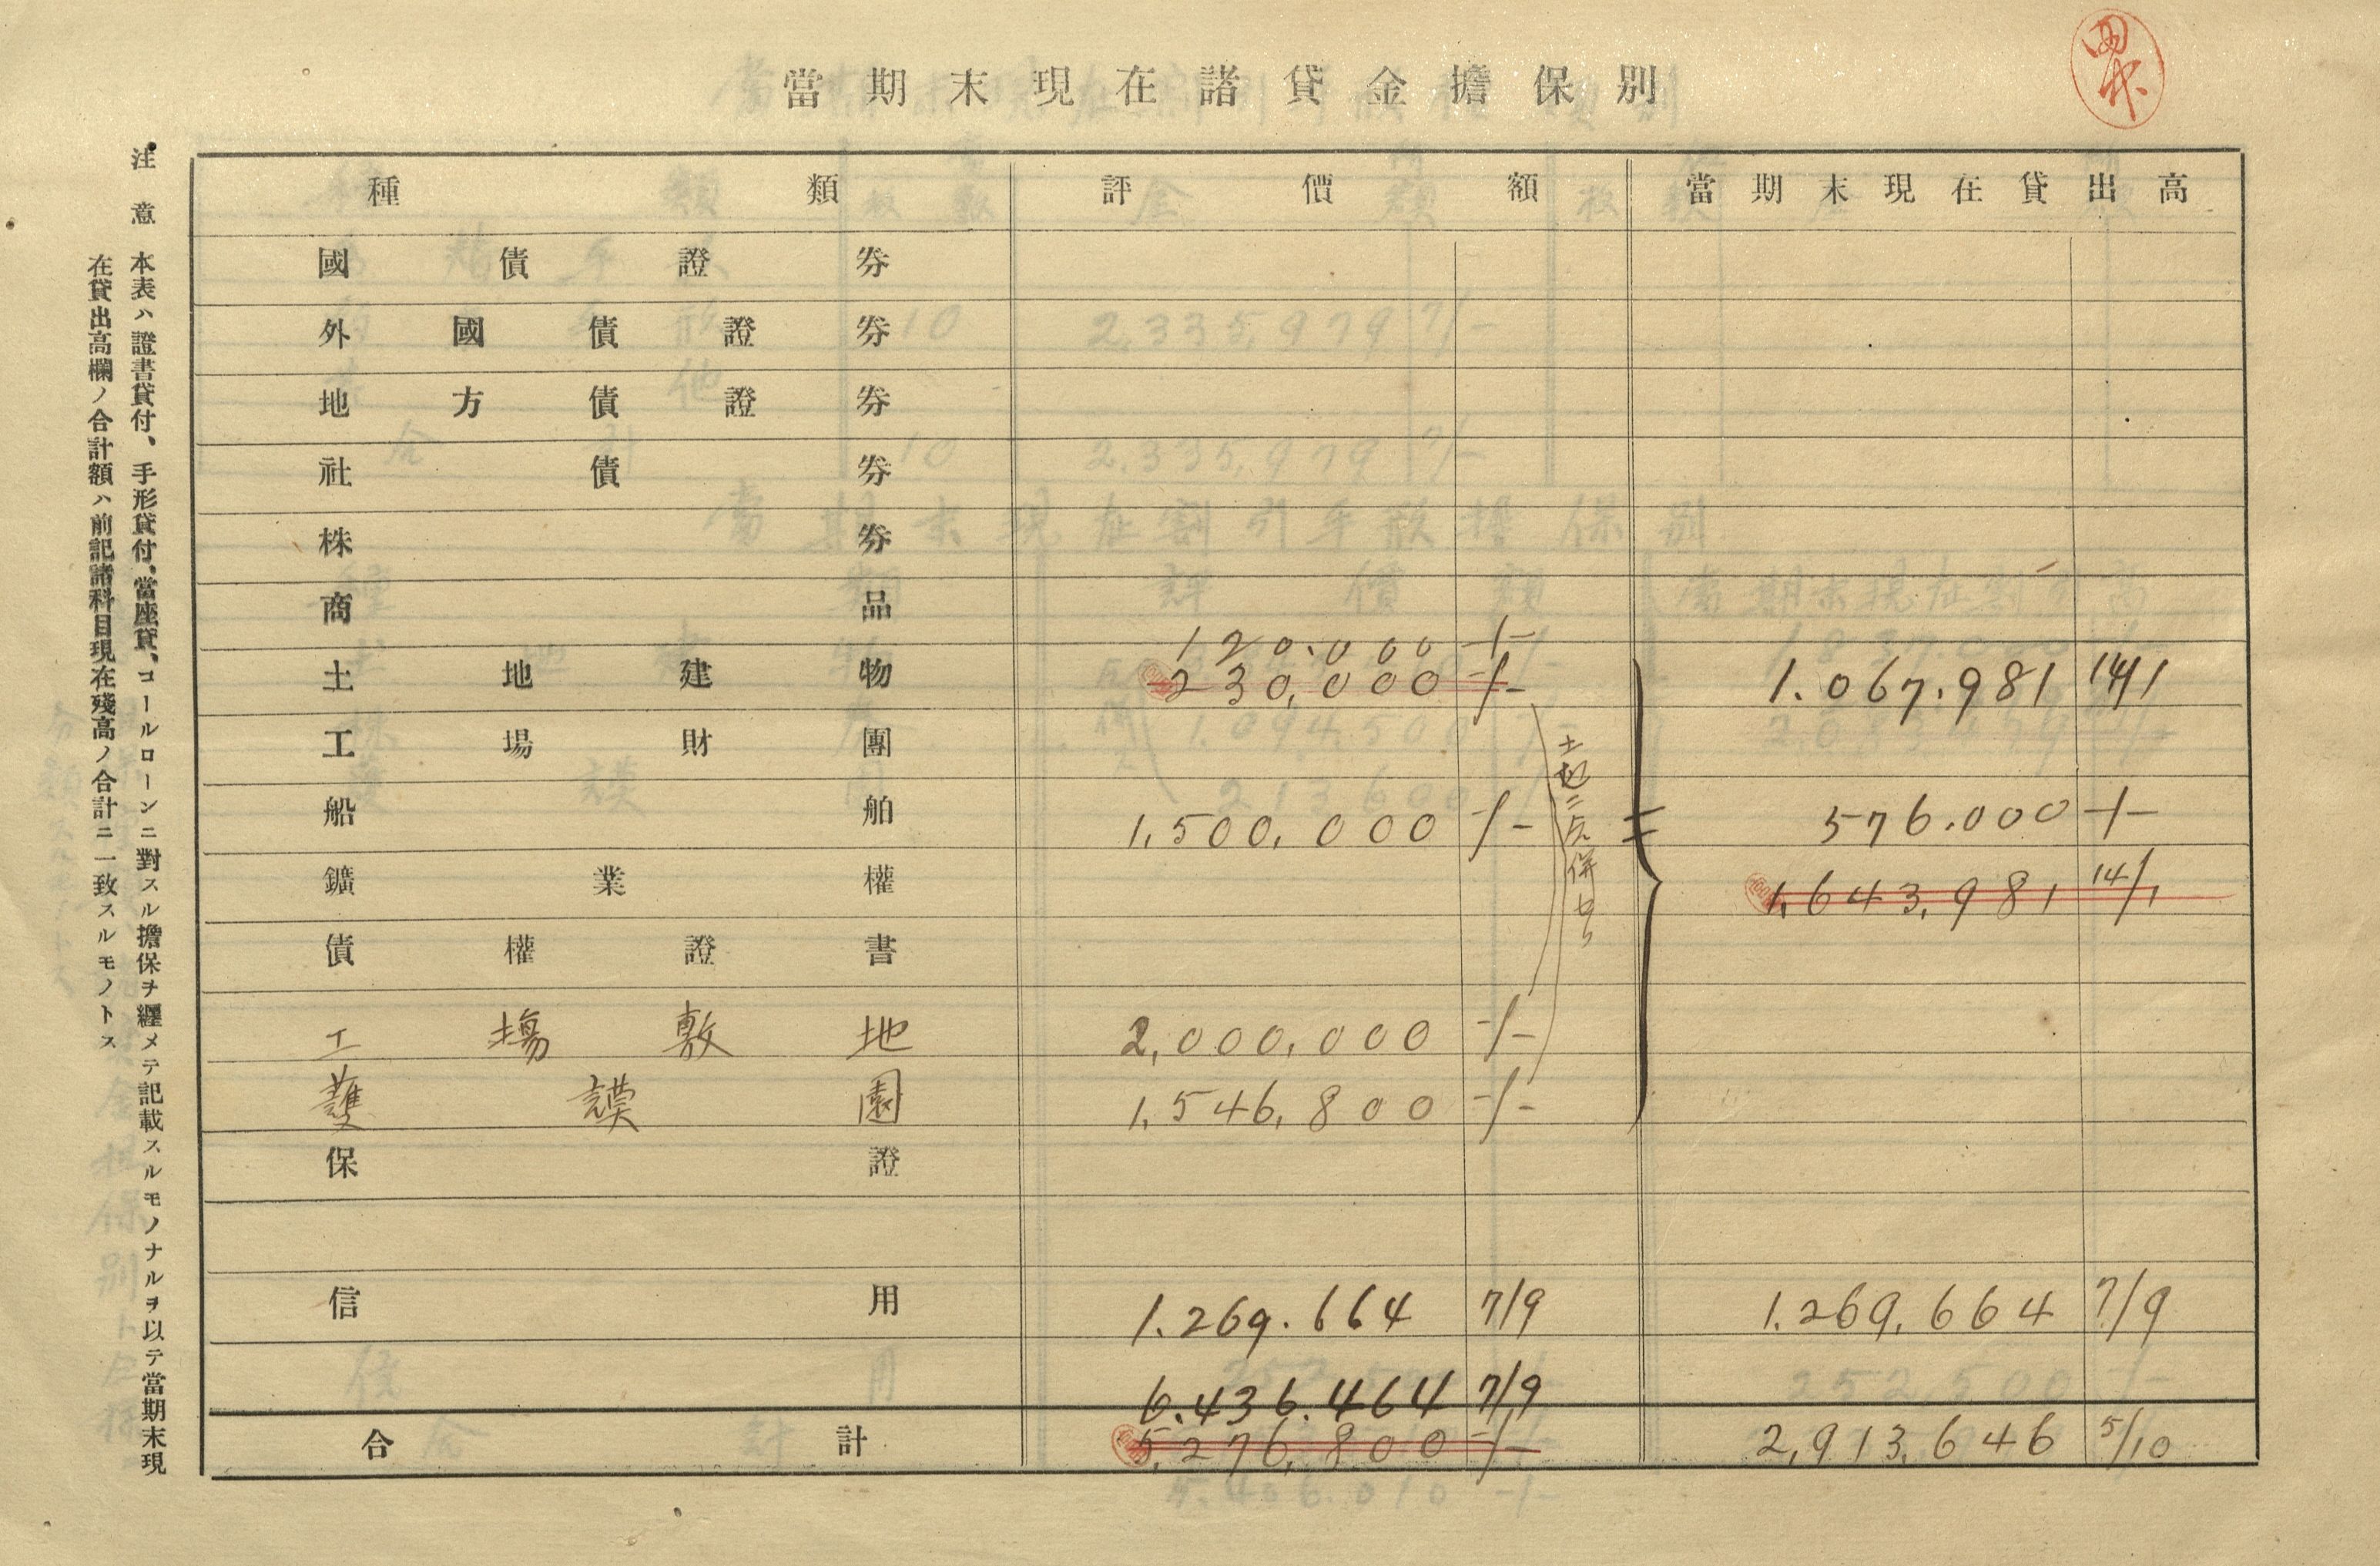 當期末現在諸貸金擔保別
種類 評價額 當期末現在貸出高
國債證券
外國債證券
地方債證券
社債券
株券
商品
120.000 -/-
土地建物 230,000 -/- 1.067.981 14/1
工場財團
船舶 1,500,000 -/- 576.000 -/-
鑛業權 1,643,981 14/1
債權證書
工場敷地 2,000,000 -/-
護謨園 1,546,800 -/-
保證
信用 1.269.664 7/9 1.269,664 7/9
6.436.464 7/9
合計 5,276,800 -/- 2,913,646 5/10
注意 本表ハ證書貸付、手形貸付、當座貸、コールローンニ對スル擔保ヲ纒メテ記載スルモノナルヲ以テ當期末現
在貸出高欄ノ合計額ハ前記諸科目現在殘高ノ合計ニ一致スルモノトス